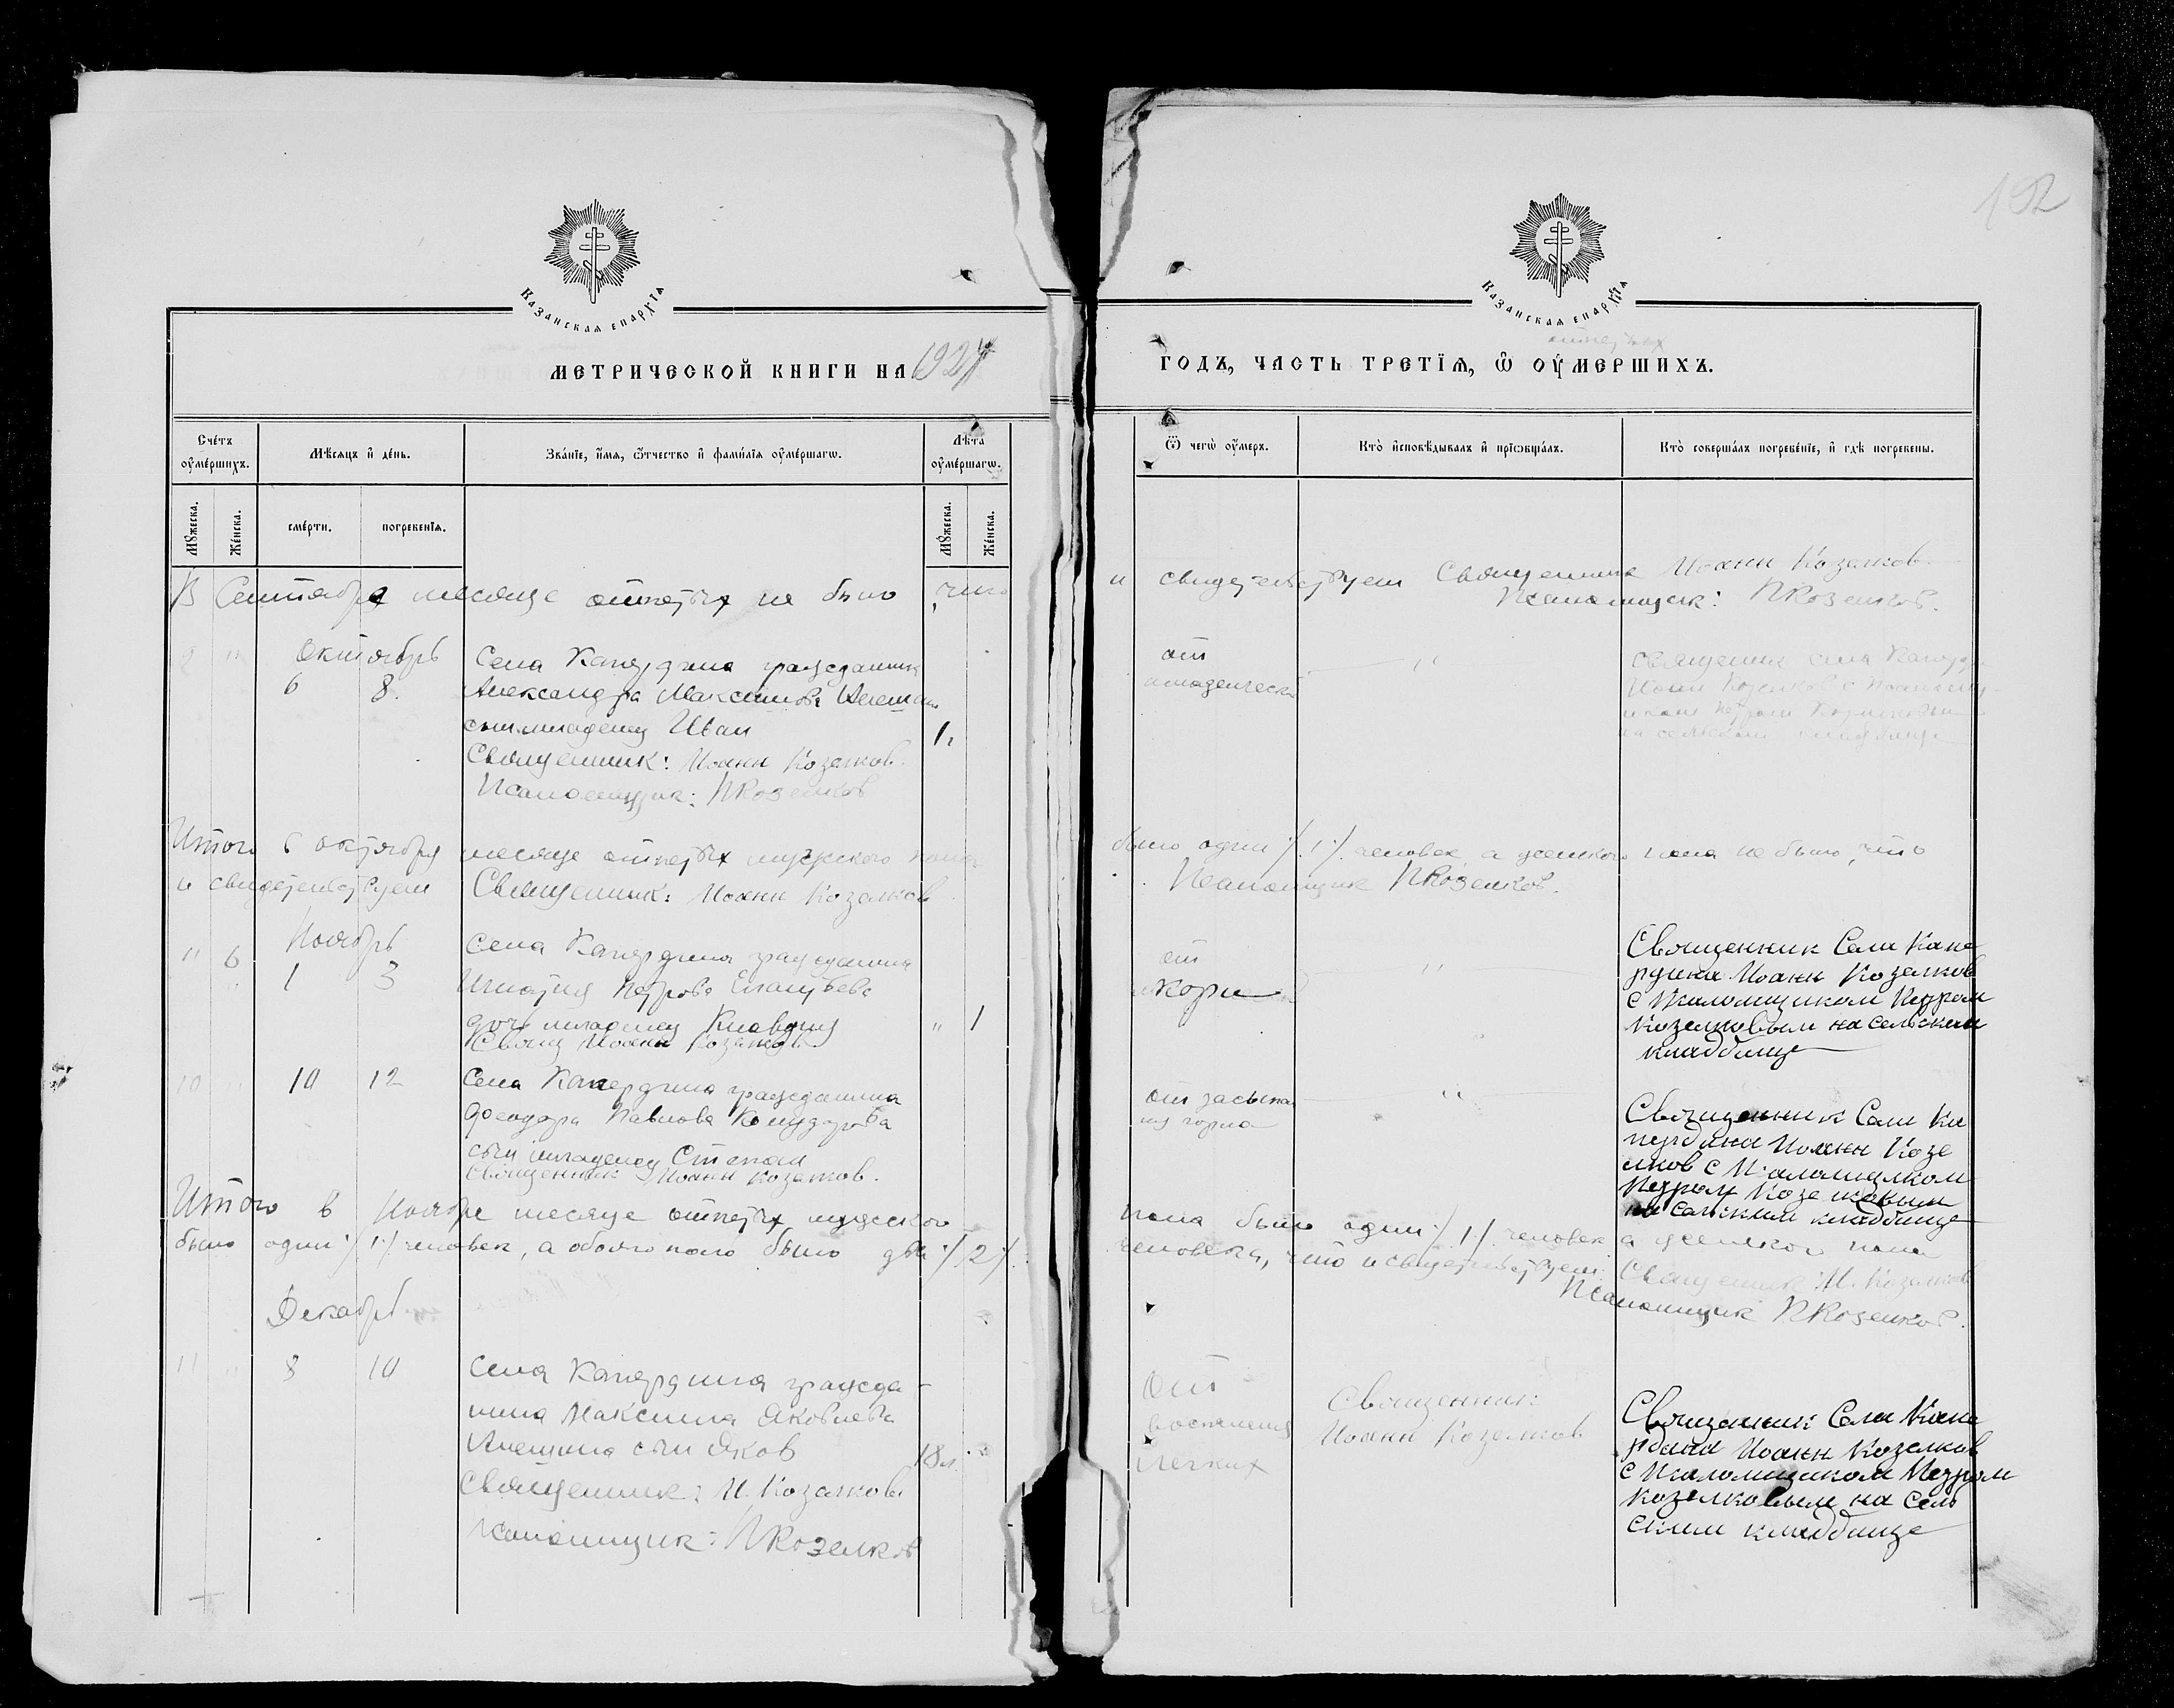 192
Казанская епархїѧ
Казанская епархїѧ
МЕТРИЧЕСКОЙ КНИГИ НА 1924
отпетых
ГОДЪ, ЧАСТЬ ТРЕТЇѦ, Ѡ ОУМЕРШИХЪ.
Счéтъ оумéршихъ.
Мѣсяцъ и дéнь.
Звáнїе, и́мѧ, ѻ́тчество и фами́лїѧ оумéршагѡ.
Лѣта оумéршагѡ.
Ѿ чегѡ̀ оу́меръ.
Кто̀ и҆сповѣ́дывалъ и҆ прїѡбщáлъ.
Кто̀ совершáлъ погребéнїе, и҆ гдѣ̀ погребены.
Мꙋ́жеска.
Жéнска.
смéрти.
погребенїѧ.
Мꙋ́жеска.
Жéнска.
В Сентябре месяце отпетых не было, что
и свидетельствуем Священник Иоанн Козелков
Псаломщик: ПКозелков.
Октябрь
6 8.
Села Капердина гражданина
Александра Максимова
сын младенец Иван
1 г
Священник: Иоанн Козелков.
Псаломщик: ПКозелков
от
младенческой
"
Священник села
Иоан Козелков с Псаломщ-
иком Петром Козелковым
на сельском кладбище
Итого в октябре месяце отпетых мужского пола
было один /1/ человек, а женского пола не было, что
и свидетельствуем Священник: Иоанн Козелков
Псаломщик ПКозелков.
Ноябрь
" 6 1 3
Села Капердина гражданина
Игнатия Петрова
дочь младенец Клавдия
Свящ Иоанн Козелков
" 1
от
кори
"
Священник Села Капе
рдина Иоанн Козелков
с Псаломщиком Петром
Козелковым на сельском
кладбище
10 " 10 12
Села Капердина гражданина
Феодора Павлова
сын младенец Степан
Священник Иоанн Козелков.
от засыпа
ния горла
"
Священник Села Ка
пердина Иоанн Козе
лков с Псаломщиком
Петром Козелковым
на сельским кладбище
Итого в Ноябре месяце отпетых мужского
пола было один /1/ человек а женского пола
было один /1/ человек, а обоего пола было два /2/
человека, что и свидетельствуем: Священник: И. Козелков
Псаломщик ПКозелков.
Декабрь
11 " 8 10
Села Капердина гражда-
нина Максима Яковлева
сын Яков
18 л.
Священник: И. Козелков
Псаломщик: ПКозелков
От
воспаления
легких
Священник:
Иоанн Козелков
Священник Села Капе
рдина Иоанн Козелков
с Псаломщиком Петром
Козелковым на сель
ским кладбище